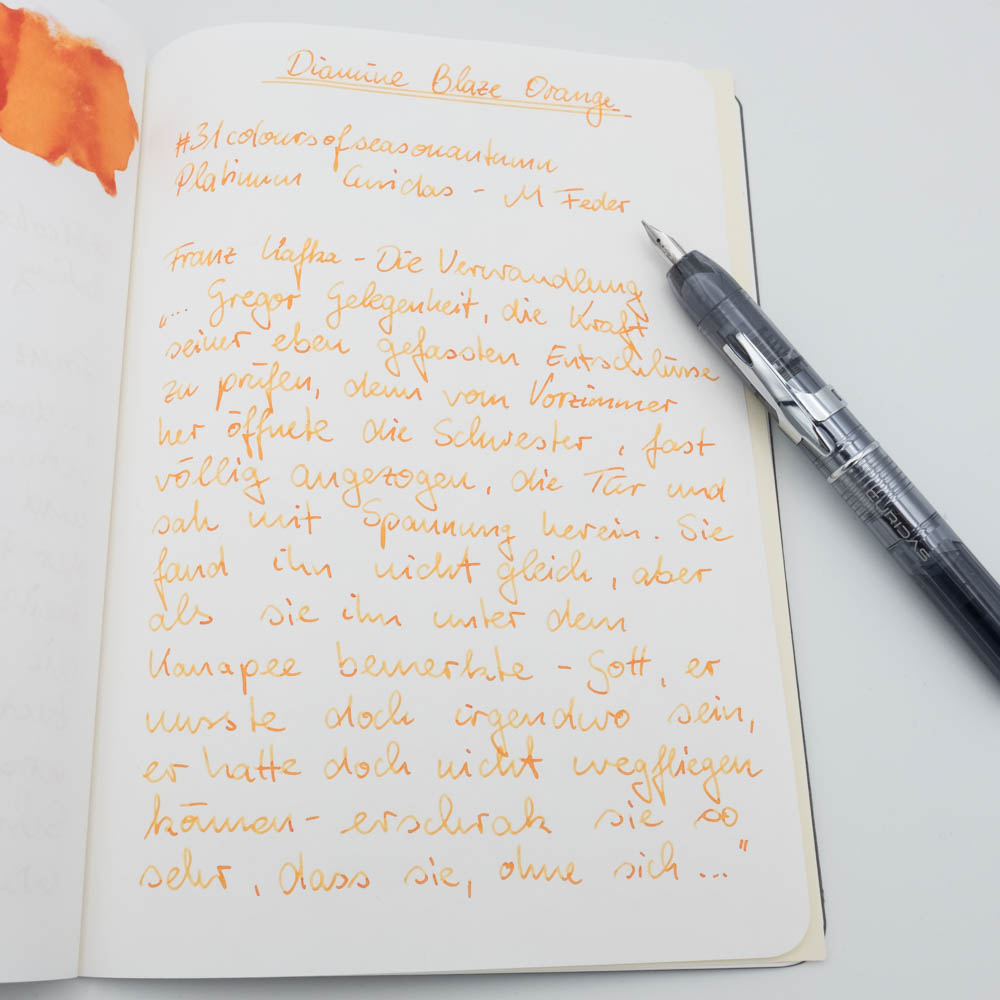 Diamine Blaze Orange
#31coloursofseasonautumn
Platinum Curidas - M Feder
Franz Kafka - Die Verwandlung
„... Gregor Gelegenheit, die Kraft
seiner eben gefassten Entschlüsse
zu prüfen, denn vom Vorzimmer
her öffnete die Schwester, fast
völlig angezogen, die Tür und
sah mit Spannung herein. Sie
fand ihn nicht gleich, aber
als sie ihn unter dem
Kanapee bemerkte - Gott, er
musste doch irgendwo sein,
er hatte doch nicht wegfliegen
können - erschrak sie so
sehr, dass sie, ohne sich ..."
CURIDAS